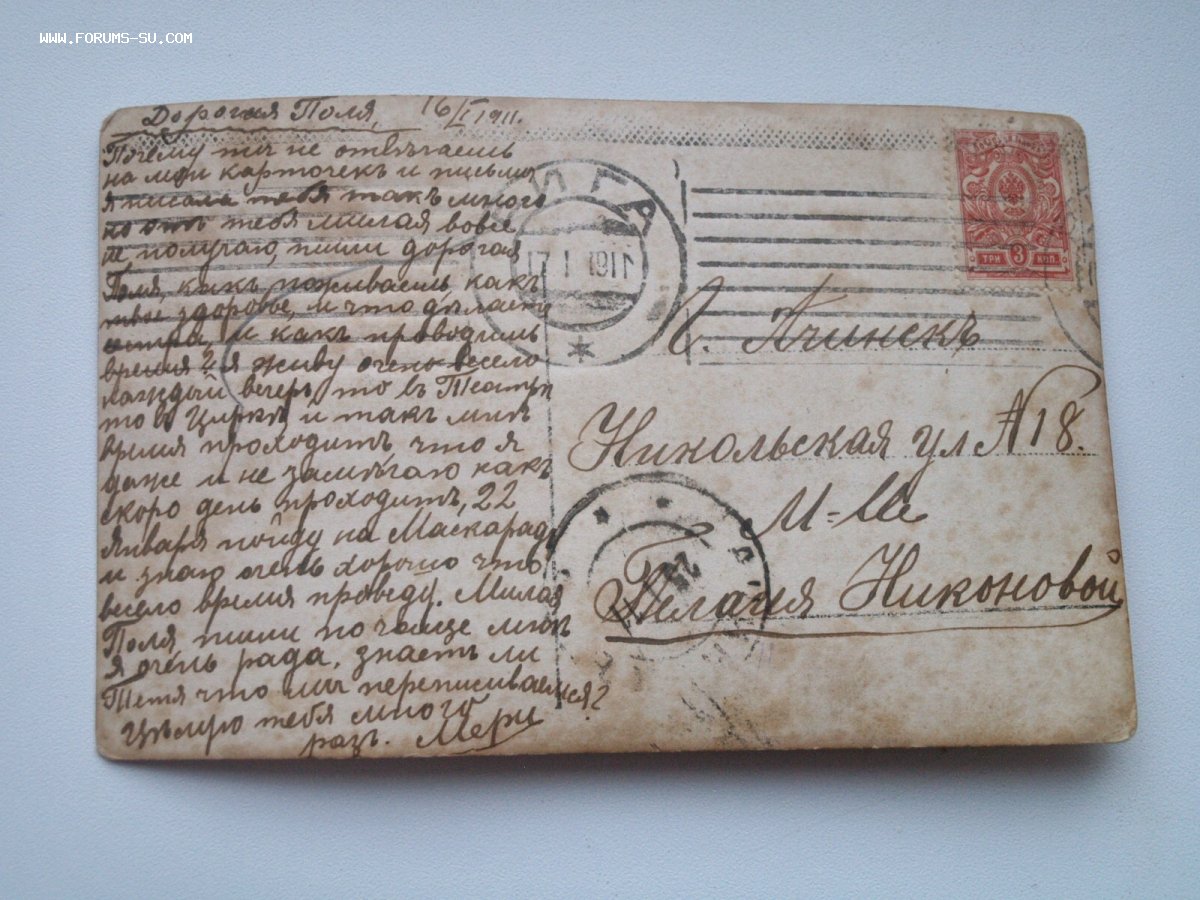 WWW.FORUMS-SU.COM
Дорогая Поля, 16/I 1911.
Почему ты не отвѣчаешь
на мои карточекъ и письма
я писала тебя такъ много
но отъ тебя милая вовсе
не получаю, пиши дорогая
Поля, какъ поживаешь, какъ
твое здоровье, и что дѣлаетъ
сестра, и какъ проводишь
время? я живу очень весело
каждый вечеръ то въ Театръ
то в Циркѣ и такъ мнѣ
время проходитъ, что я
даже и не замѣчаю какъ
скоро день проходитъ, 22
Января пойду на Маскарадъ
и знаю очень хорошо что
весело время проведу. Милая
Поля, пиши почаще мнѣ
я очень рада, знаетъ ли
Тетя что мы переписываемся?
Цѣлую тебя много
разъ. Мери
РИГА
17 1 1911
ТРИ 3 КОП.
Г. Ачинскъ
Никольская ул № 18.
М-ле
Пелагия Никоновой